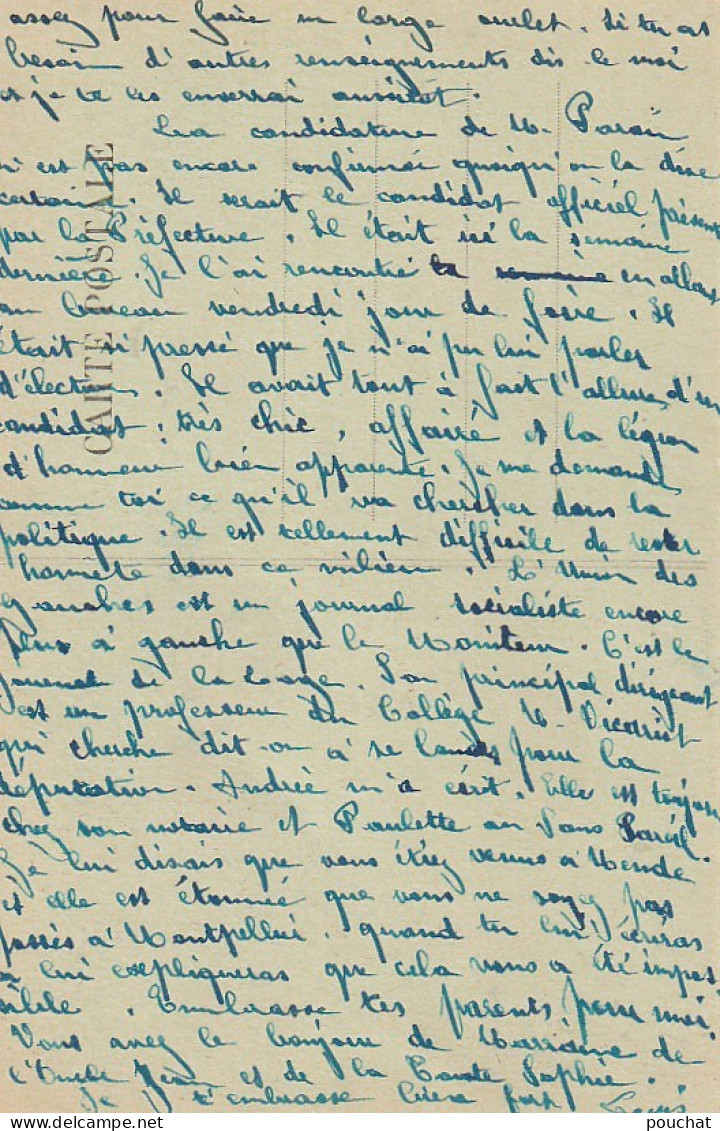 assez pour faire un large ourlet. Si tu as
besoin d'autres renseignements dis-le moi
et je te les enverrai aussitôt.
La candidature de M.
n'est pas encore confirmée quoiqu'on la dise
certaine. Il serait le candidat officiel présenté
par la Préfecture. Il était ici la semaine
dernière. Je l'ai rencontré la semaine en allant
au bureau vendredi jour de foire. Il
était si pressé que je n'ai pu lui parler
d'élections. Il avait tout à fait l'allure d'un
candidat: très chic, affairé et la légion
d'honneur bien apparente. Je me demande
comme toi ce qu'il va chercher dans la
politique. Il est tellement difficile de rester
honnête dans ce milieu. L'Union des
gauches est un journal socialiste encore
plus à gauche que le Moniteur. C'est le
journal de la Loge. Son principal dirigeant
est un professeur du Collège M.
qui cherche dit-on à se lancer pour la
députation. Andrée m'a écrit. Elle est toujours
chez son notaire et Paulette au Sans Pareil.
Je lui disais que vous étiez venus à Mende
et elle est étonnée que vous ne soyez pas
passés à Montpellier. quand tu lui écriras
tu lui expliqueras que cela vous a été impos-
sible. Embrasse tes parents pour moi.
Vous avez le bonjour de Marraine de
l'Oncle Jean et de la Tante Sophie.
Je t'embrasse bien fort Louis
CARTE POSTALE
www.delcampe.net
pouchat